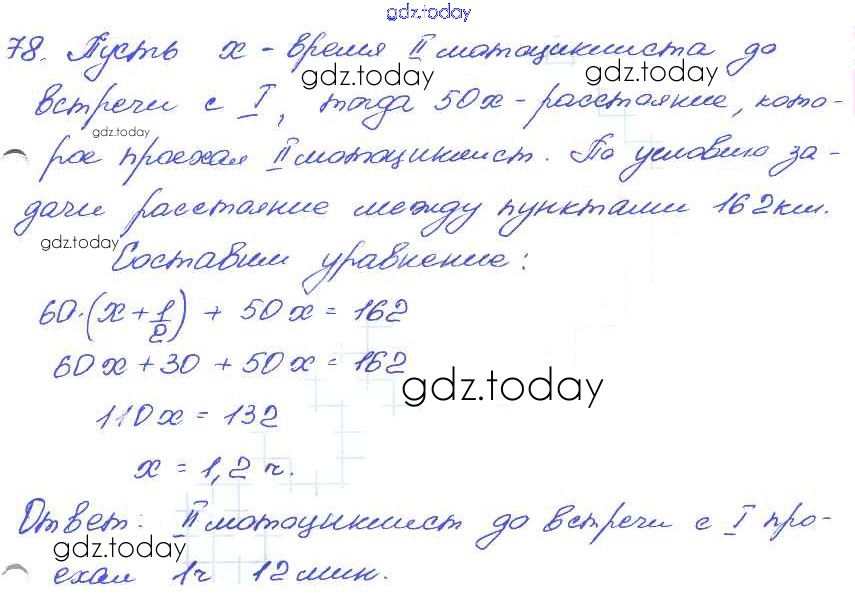 gdz.today
78. Пусть x - время II мотоциклиста до
gdz.today gdz.today
встречи с I, тогда 50x - расстояние, кото-
gdz.today
рое проехал II мотоциклист. По условию за-
дачи расстояние между пунктами 162 км.
gdz.today
Составим уравнение:
60·(x + 1/2) + 50x = 162
60x + 30 + 50x = 162
gdz.today
110x = 132
x = 1,2 ч.
Ответ: II мотоциклист до встречи с I про-
gdz.today gdz.today
ехал 1ч 12 мин.